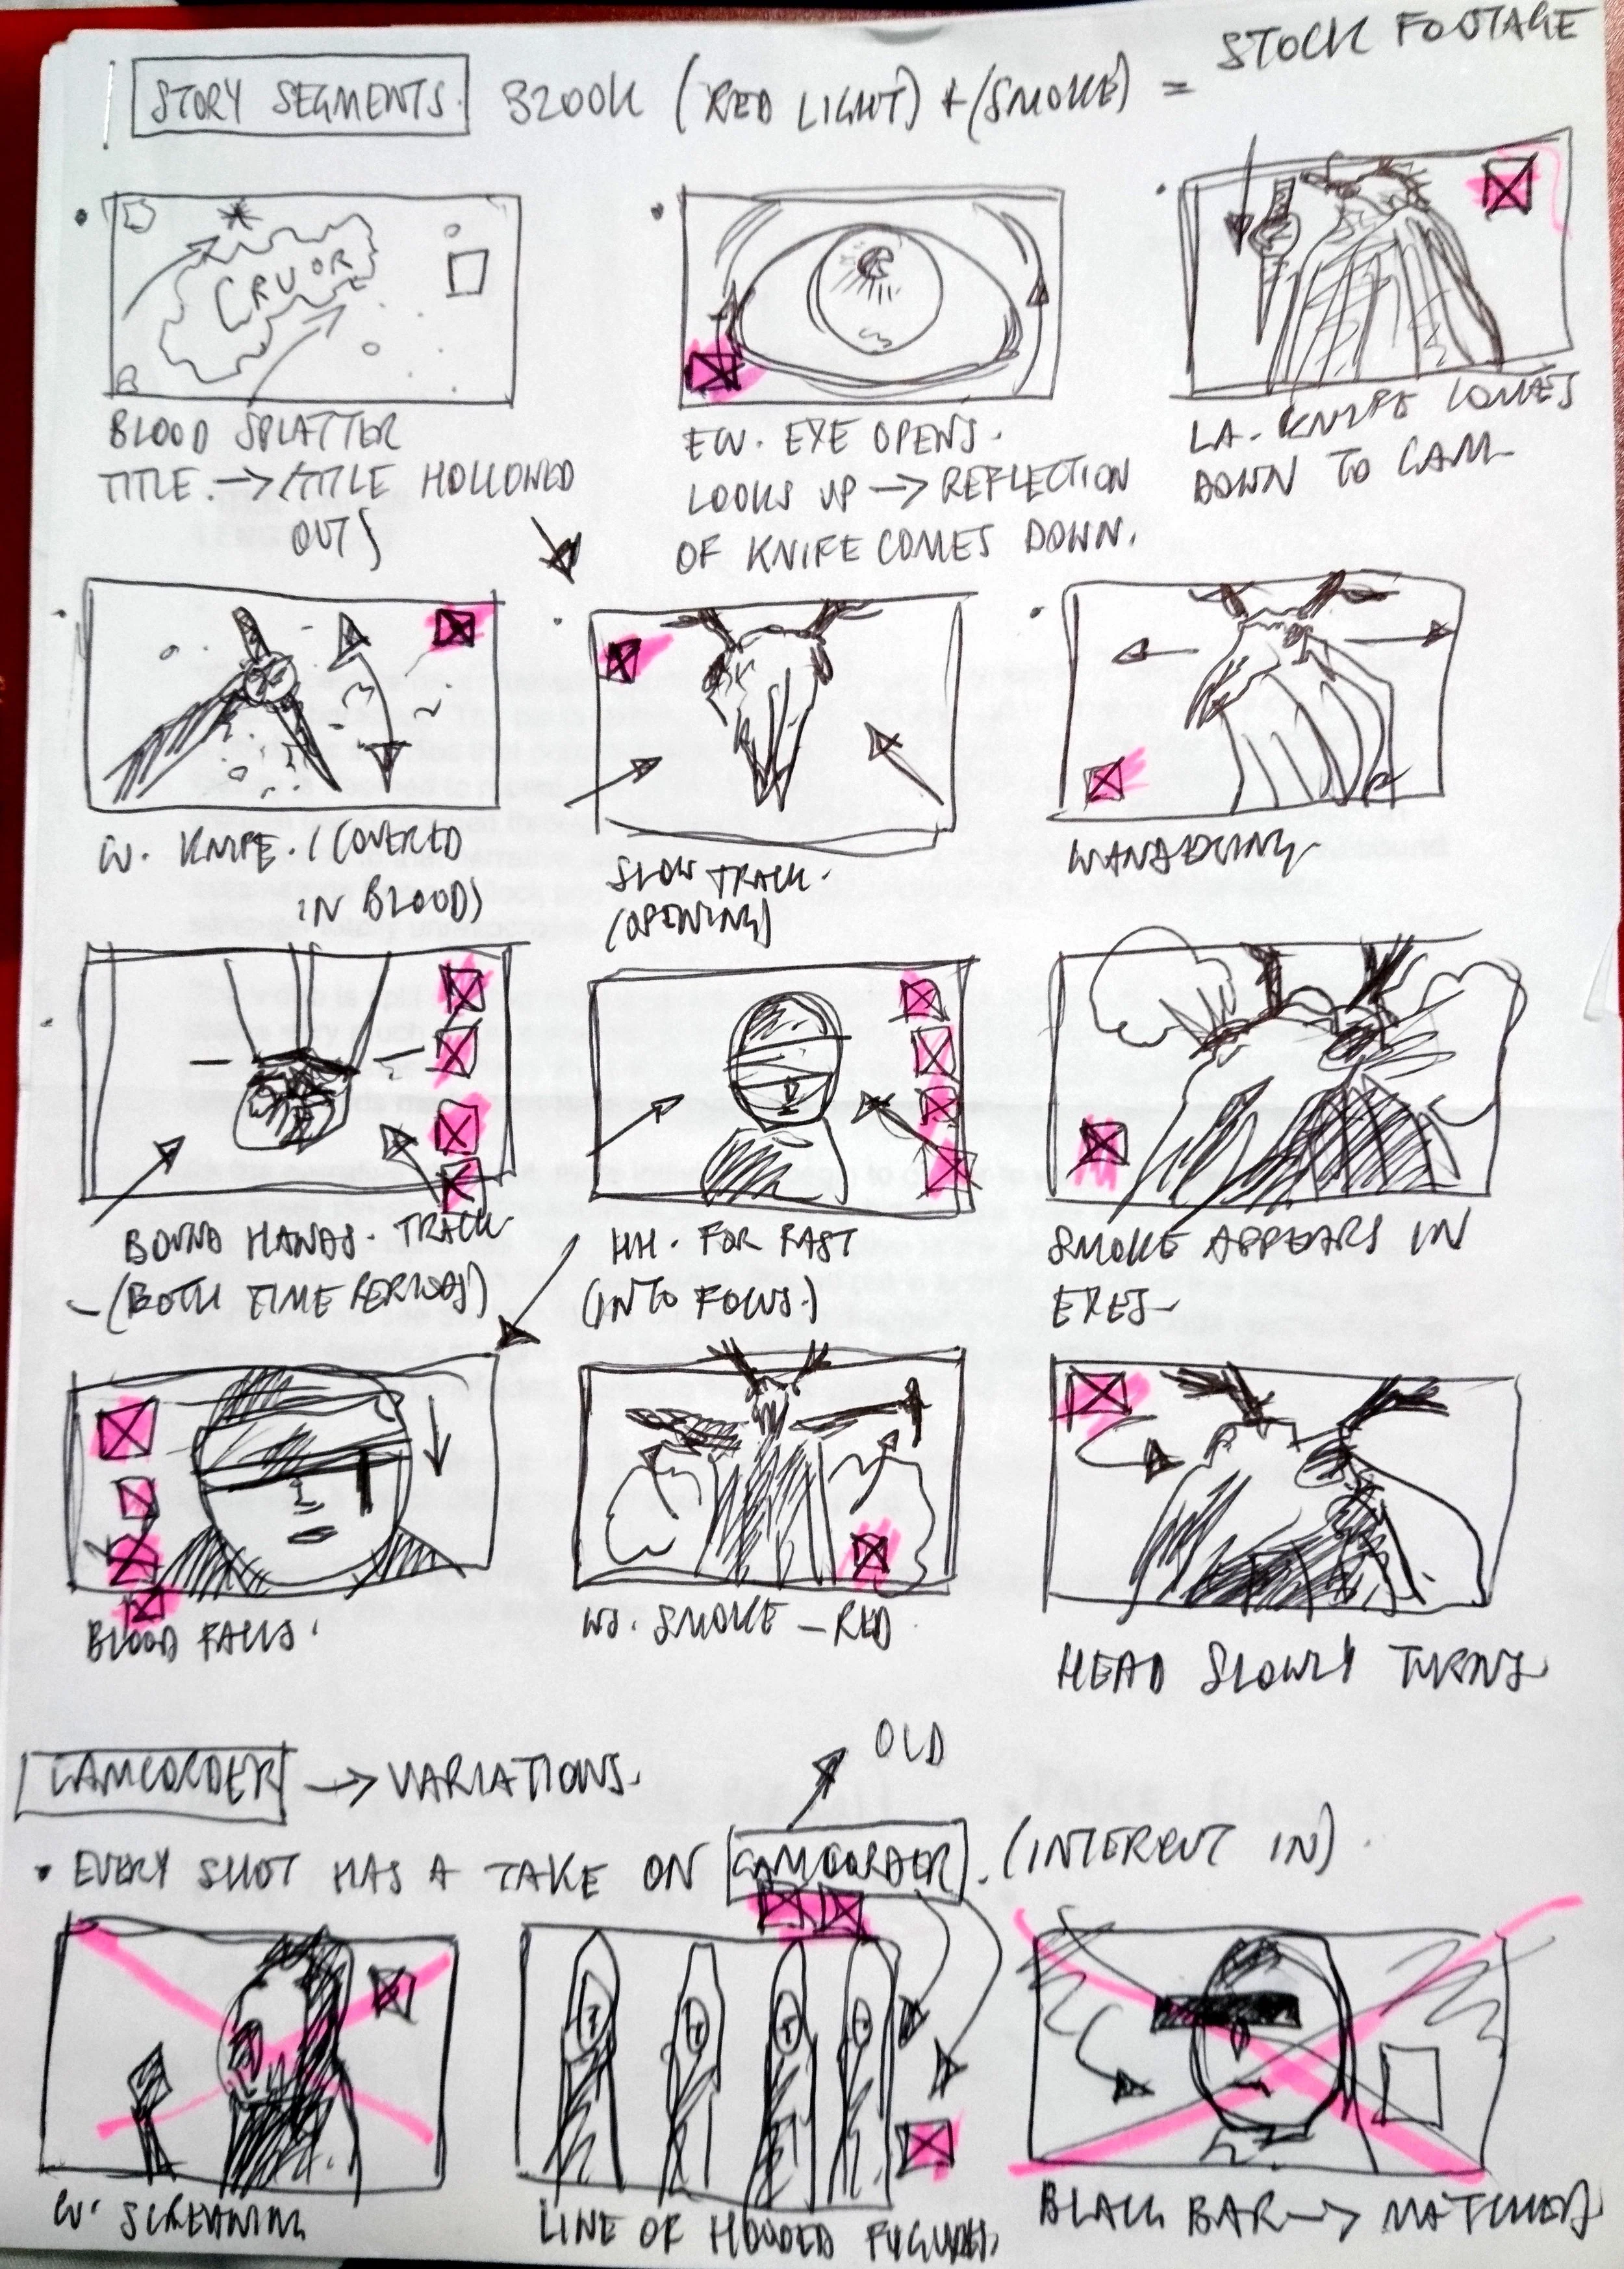 STOCK FOOTAGE
STORY SEGMENTS. 3200K (RED LIGHT) + (SMOKE) =
CRUOR
BLOOD SPLATTER
TITLE. → (TITLE HOLLOWED
OUT)
ECU. EYE OPENS.
LOOKS UP → REFLECTION
OF KNIFE COMES DOWN.
LA. KNIFE COMES
DOWN TO CAM
CU. KNIFE. (COVERED
IN BLOOD)
SLOW TRACK.
(OPENING)
WANDERING
BOUND HANDS. TRACK
- (BOTH TIME PERIODS)
HH. FOR PAST
(INTO FOCUS.)
SMOKE APPEARS IN
EYES
BLOOD FALLS.
WS. SMOKE - RED
HEAD SLOWLY TURNS
CAMCORDER → VARIATIONS.
OLD
• EVERY SHOT HAS A TAKE ON CAMCORDER. (INTERCUT IN).
CU. SCREAMING
LINE OF HOODED FIGURES.
BLACK BAR → MATCHES